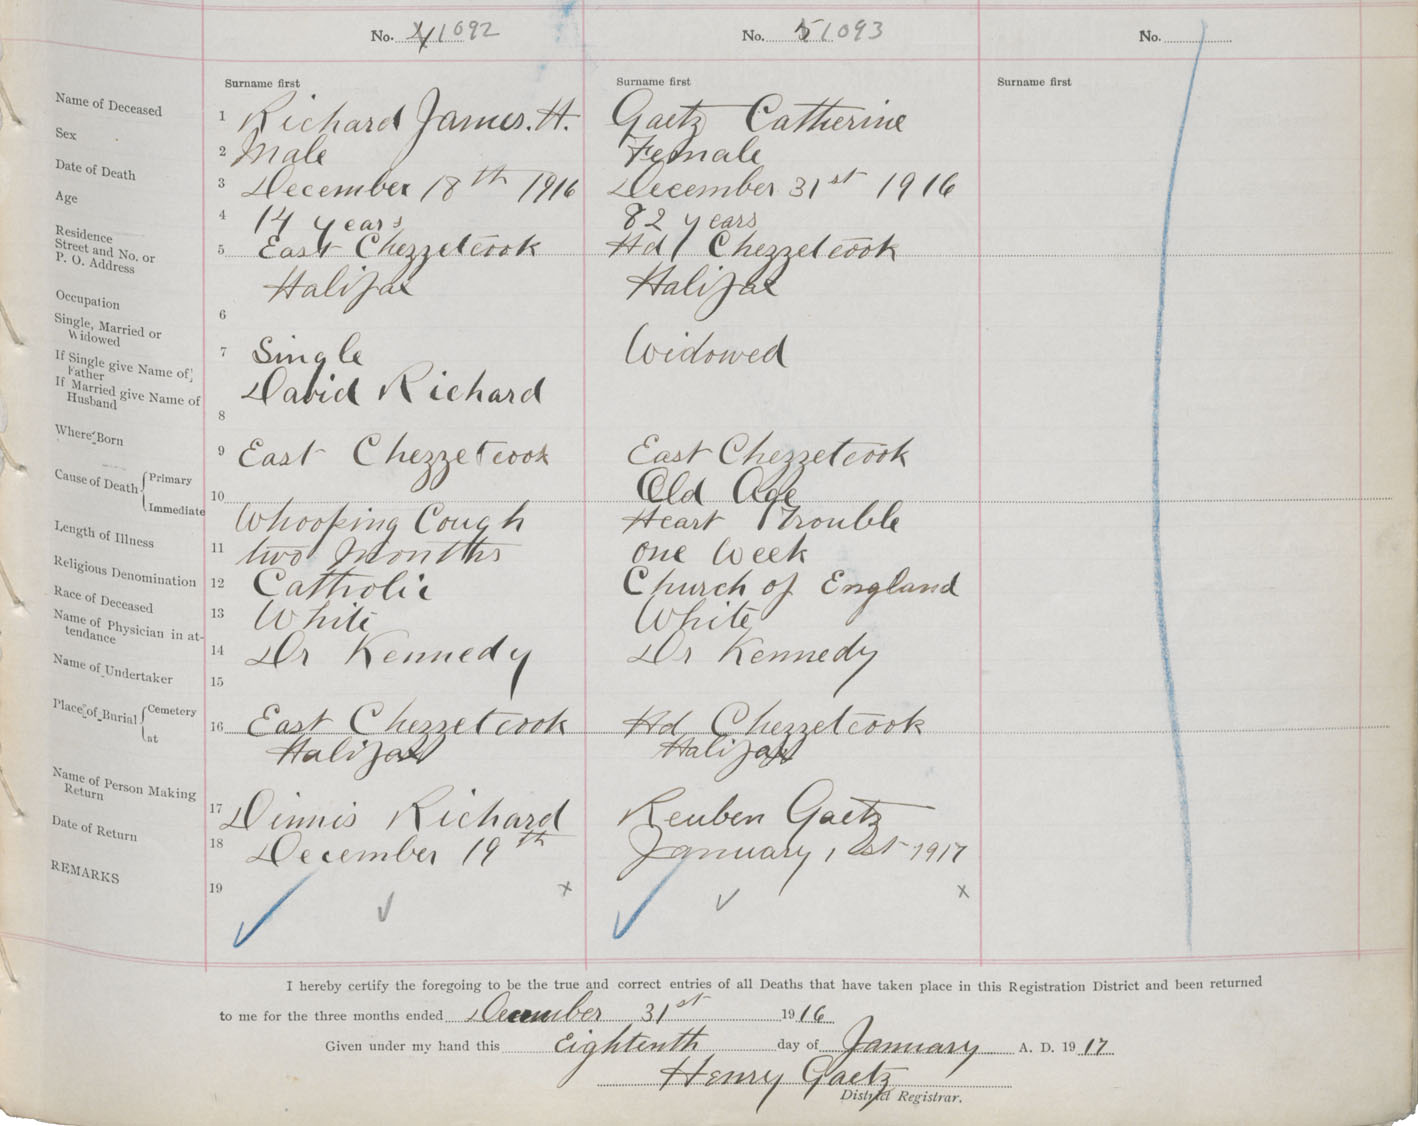 No. 4 1092
No. 5 1093
No.
Surname first
Surname first
Surname first
Name of Deceased 1 Richard James. H. Gaetz Catherine
Sex 2 Male Female
Date of Death 3 December 18th 1916 December 31st 1916
Age 4 14 years 82 years
Residence
Street and No. or 5 East Chezzetcook Hd Chezzetcook
P. O. Address Halifax Halifax
Occupation 6
Single, Married or
Widowed 7 Single Widowed
If Single give Name of
Father David Richard
If Married give Name of
Husband 8
Where Born 9 East Chezzetcook East Chezzetcook
Cause of Death Primary 10 Old Age
Immediate Whooping Cough Heart Trouble
Length of Illness 11 two Months one Week
Religious Denomination 12 Catholic Church of England
Race of Deceased 13 White White
Name of Physician in at-
tendance 14 Dr Kennedy Dr Kennedy
Name of Undertaker 15
Place of Burial Cemetery 16 East Chezzetcook Hd Chezzetcook
at Halifax Halifax
Name of Person Making
Return 17 Dinnis Richard Reuben Gaetz
Date of Return 18 December 19th January, 1st 1917
REMARKS 19
I hereby certify the foregoing to be the true and correct entries of all Deaths that have taken place in this Registration District and been returned
to me for the three months ended December 31st 1916
Given under my hand this Eightenth day of January A. D. 1917
Henry Gaetz
District Registrar.